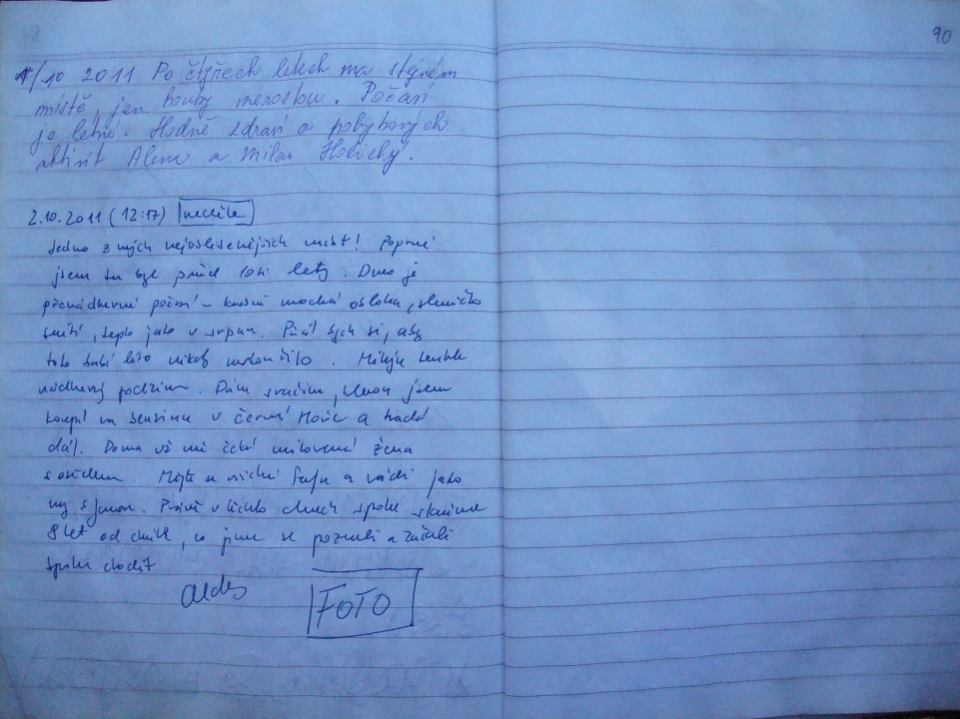 90
1/10 2011 Po čtyřech letech na stejném
místě, jen houby nerostou. Počasí
je letní. Hodně zdraví a pohybových
aktivit Alena a Milan
2.10.2011 (12:17) neděle
Jedno z mých míst! Poprvé
jsem tu byl před lety. Dnes je
přenádherné počasí – modrá obloha, sluníčko
svítí, teplo jako v srpnu. Přál bych si, aby
toto babí léto nikdy neskončilo. Miluju tenhle
nádherný podzim. Dám svačinu, kterou jsem
koupil na benzinu v Černý Hoře a
dál. Doma už mě čeká milovaná žena
s obědem. Mějte se všichni fajn a rádi jako
my s Právě v těchto dnech spolu slavíme
8 let od chvíle, co jsme se poznali a začali
spolu chodit
FOTO